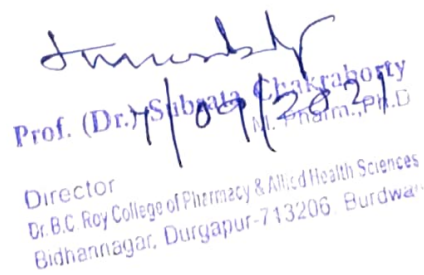 Prof. (Dr.) Subrata Chakraborty
7/09/2021
M. Pharm., Ph.D
Director
Dr. B.C. Roy College of Pharmacy & Allied Health Sciences
Bidhannagar, Durgapur-713206, Burdwan